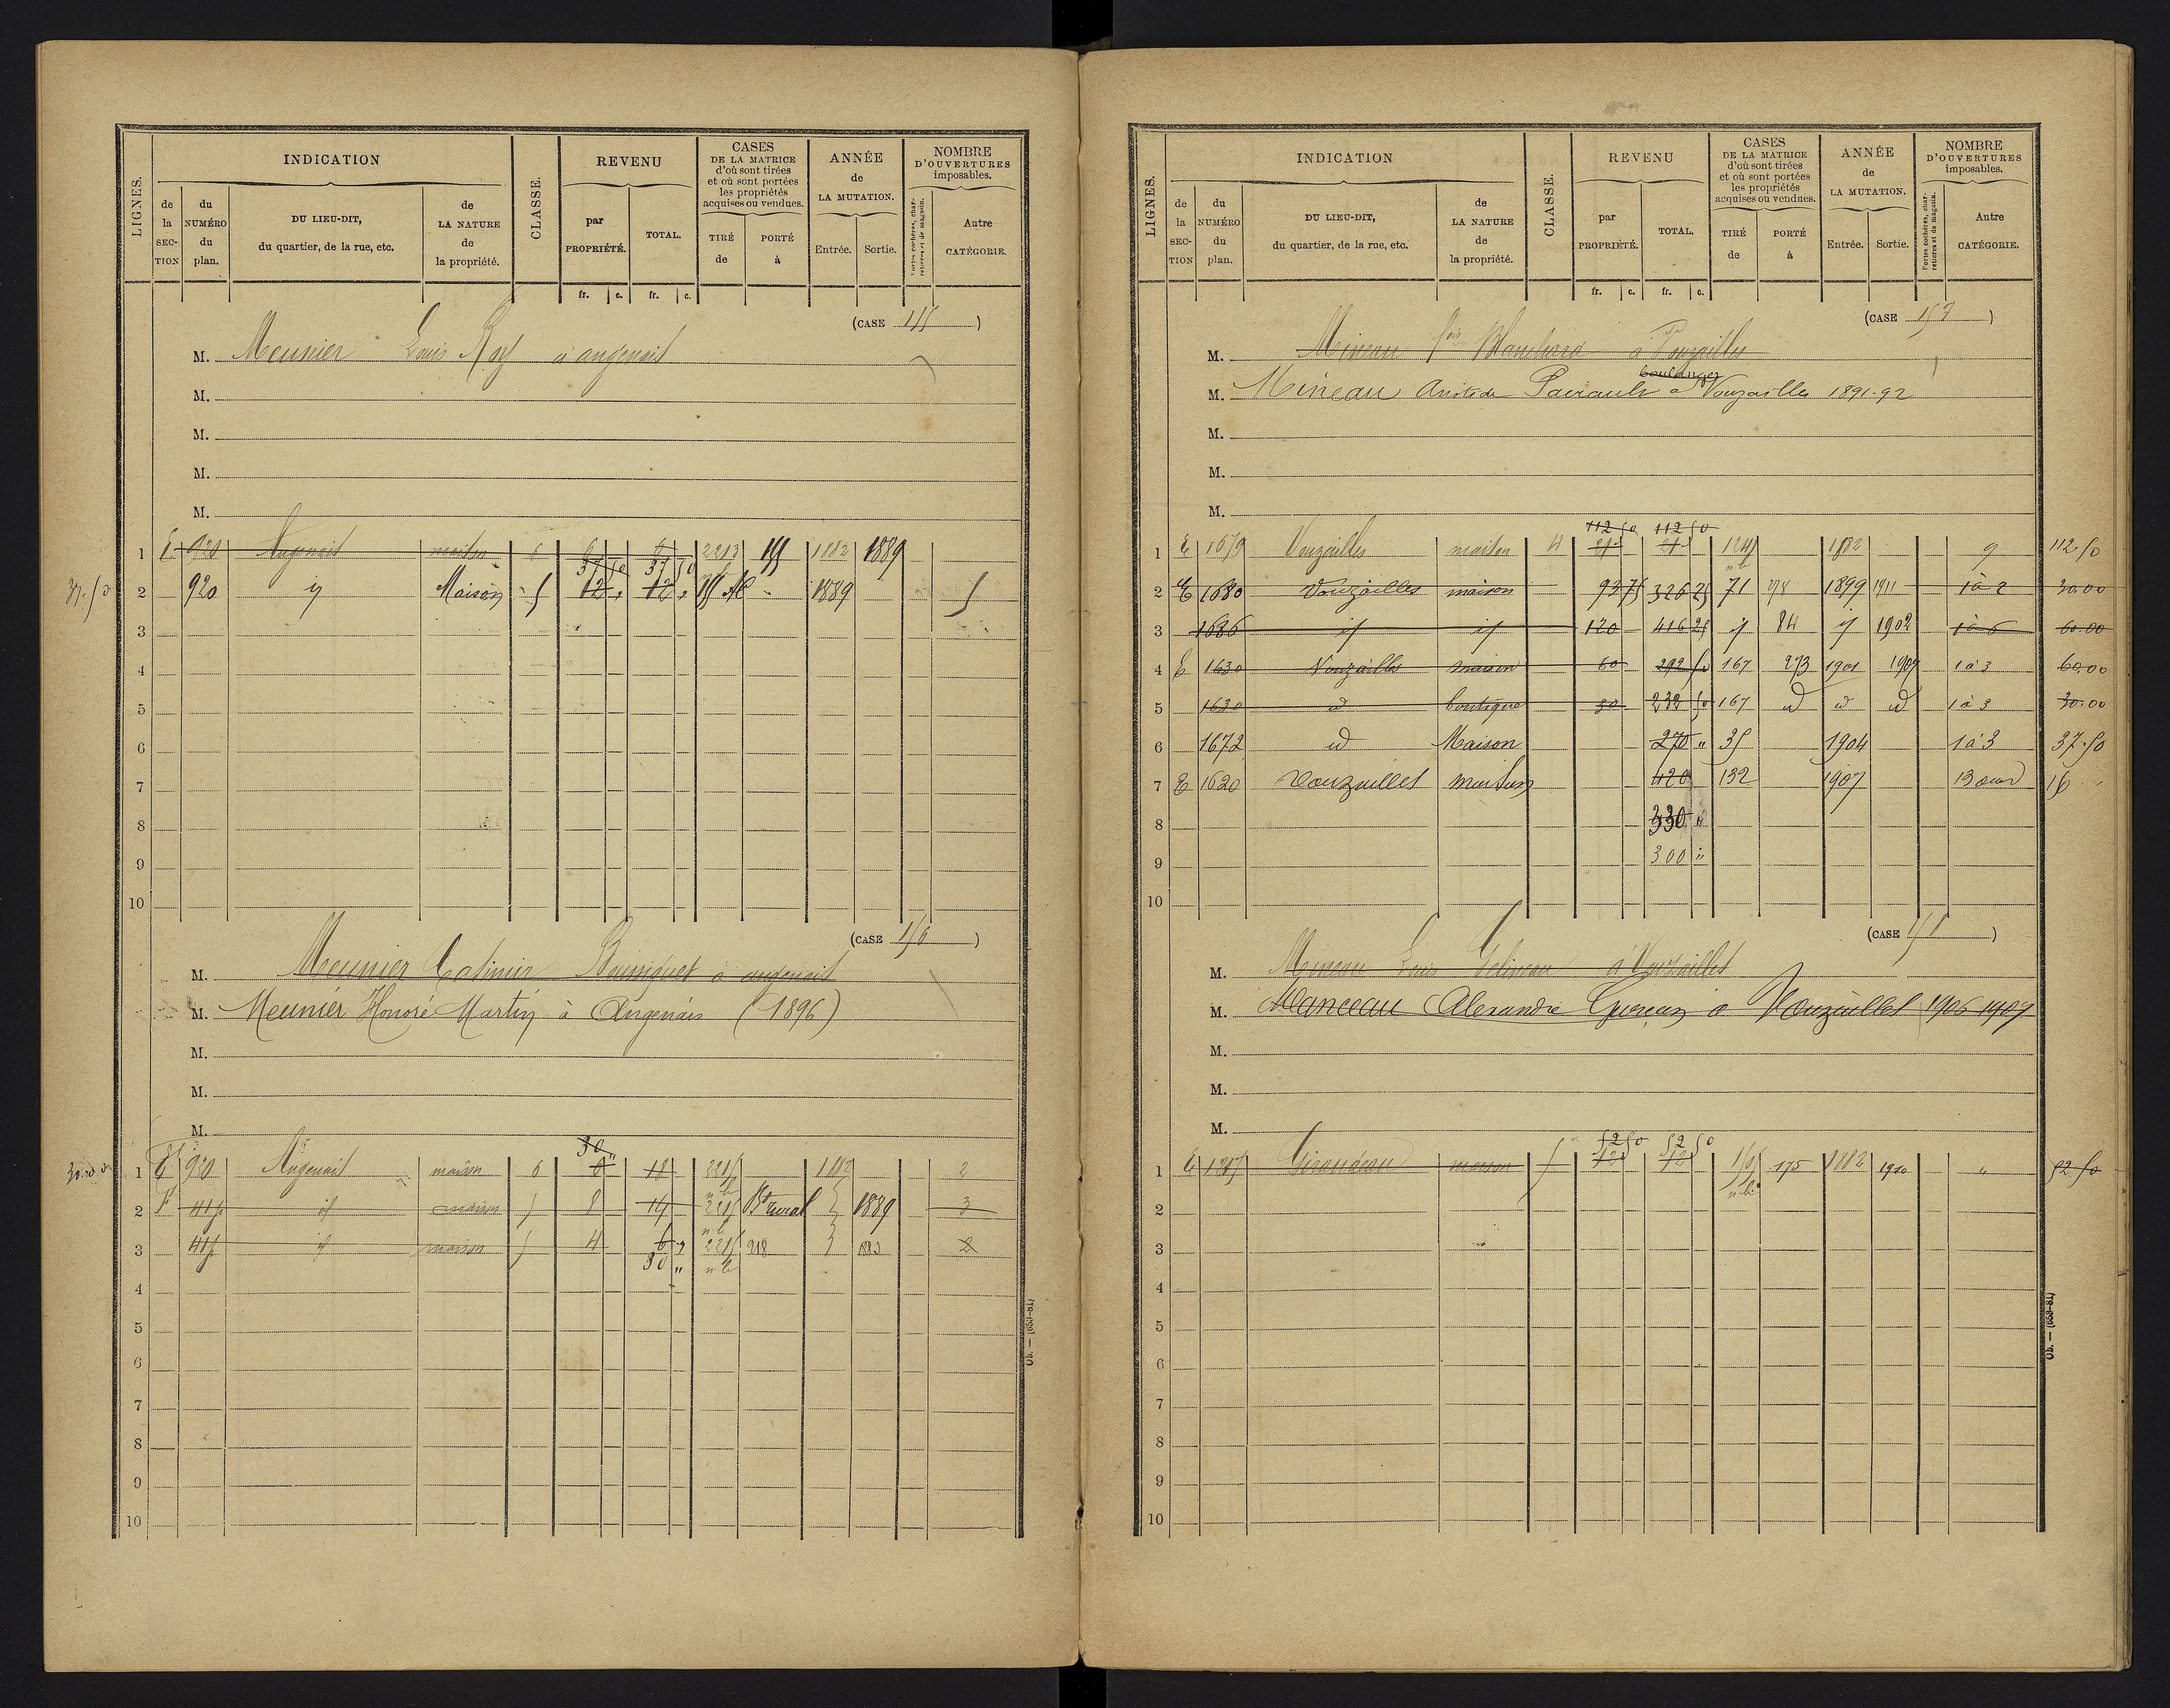 LIGNES. INDICATION CLASSE. REVENU CASES DE LA MATRICE d'où sont tirées et où sont portées les propriétés acquises ou vendues. ANNÉE de LA MUTATION. NOMBRE D'OUVERTURES imposables.
de la SECTION du NUMÉRO du plan. DU LIEU-DIT, du quartier, de la rue, etc. de LA NATURE de la propriété. par PROPRIÉTÉ. TOTAL. TIRÉ de PORTÉ à Entrée. Sortie. Portes cochères, charretières et de magasin. Autre CATÉGORIE.
fr. c. fr. c.
(CASE 155)
M. Meunier Louis Roy à augenait
M.
M.
M.
M.
1 E 920 Augenait maison 6 6 6 2213 155 1882 1889
37 50 37 50
37.50 2 920 id Maison 5 12 " 12 " 155 1889 5
3
4
5
6
7
8
9
10
(CASE 156)
M. Meunier Casimir à augenait
M. Meunier Honoré Martin à Augenais (1896)
M.
M.
M.
30 "
30.00 1 E 920 Augenait maison 6 6 18 2215 1882 2
2 F 41p id maison 5 8 14 2215 Bt rural 1889 3
3 41p id maison 5 4 6 " 2215 218 2
30 "
4
5
6
7
8
9
10
Ob. — (653-81)
LIGNES. INDICATION CLASSE. REVENU CASES DE LA MATRICE d'où sont tirées et où sont portées les propriétés acquises ou vendues. ANNÉE de LA MUTATION. NOMBRE D'OUVERTURES imposables.
de la SECTION du NUMÉRO du plan. DU LIEU-DIT, du quartier, de la rue, etc. de LA NATURE de la propriété. par PROPRIÉTÉ. TOTAL. TIRÉ de PORTÉ à Entrée. Sortie. Portes cochères, charretières et de magasin. Autre CATÉGORIE.
fr. c. fr. c.
(CASE 157)
M. Mineau Blanchard à Vouzailles
boulanger
M. Mineau Aristide Pairault à Vouzailles 1891-92
M.
M.
M.
112 50 112 50
1 E 1679 Vouzailles maison 4 21 21 1245 1882 9 112.50
2 E 1680 Vouzailles maison 93 75 326 25 71 278 1899 1911 1 à 2 30.00
3 1686 id id 120 416 25 id 84 id 1902 1 à 6 60.00
4 E 1630 Vouzailles maison 60 292 50 167 273 1901 1907 1 à 3 60.00
5 1630 id boutique 30 232 50 167 id id id 1 à 3 30.00
6 1672 id Maison 270 " 35 1904 1 à 3 37.50
7 E 1620 Vouzailles maison 420 132 1907
8 330 "
9 300 "
10
(CASE 158)
M. Mineau Louis Gelineau à Vouzailles
M. Manceau Alexandre à Vouzailles 1906 1907
M.
M.
M.
52 50 52 50
1 E Giraudeau maison 5 12 12 175 1882 1910 " 52.50
2
3
4
5
6
7
8
9
10
Ob. — (653-81)